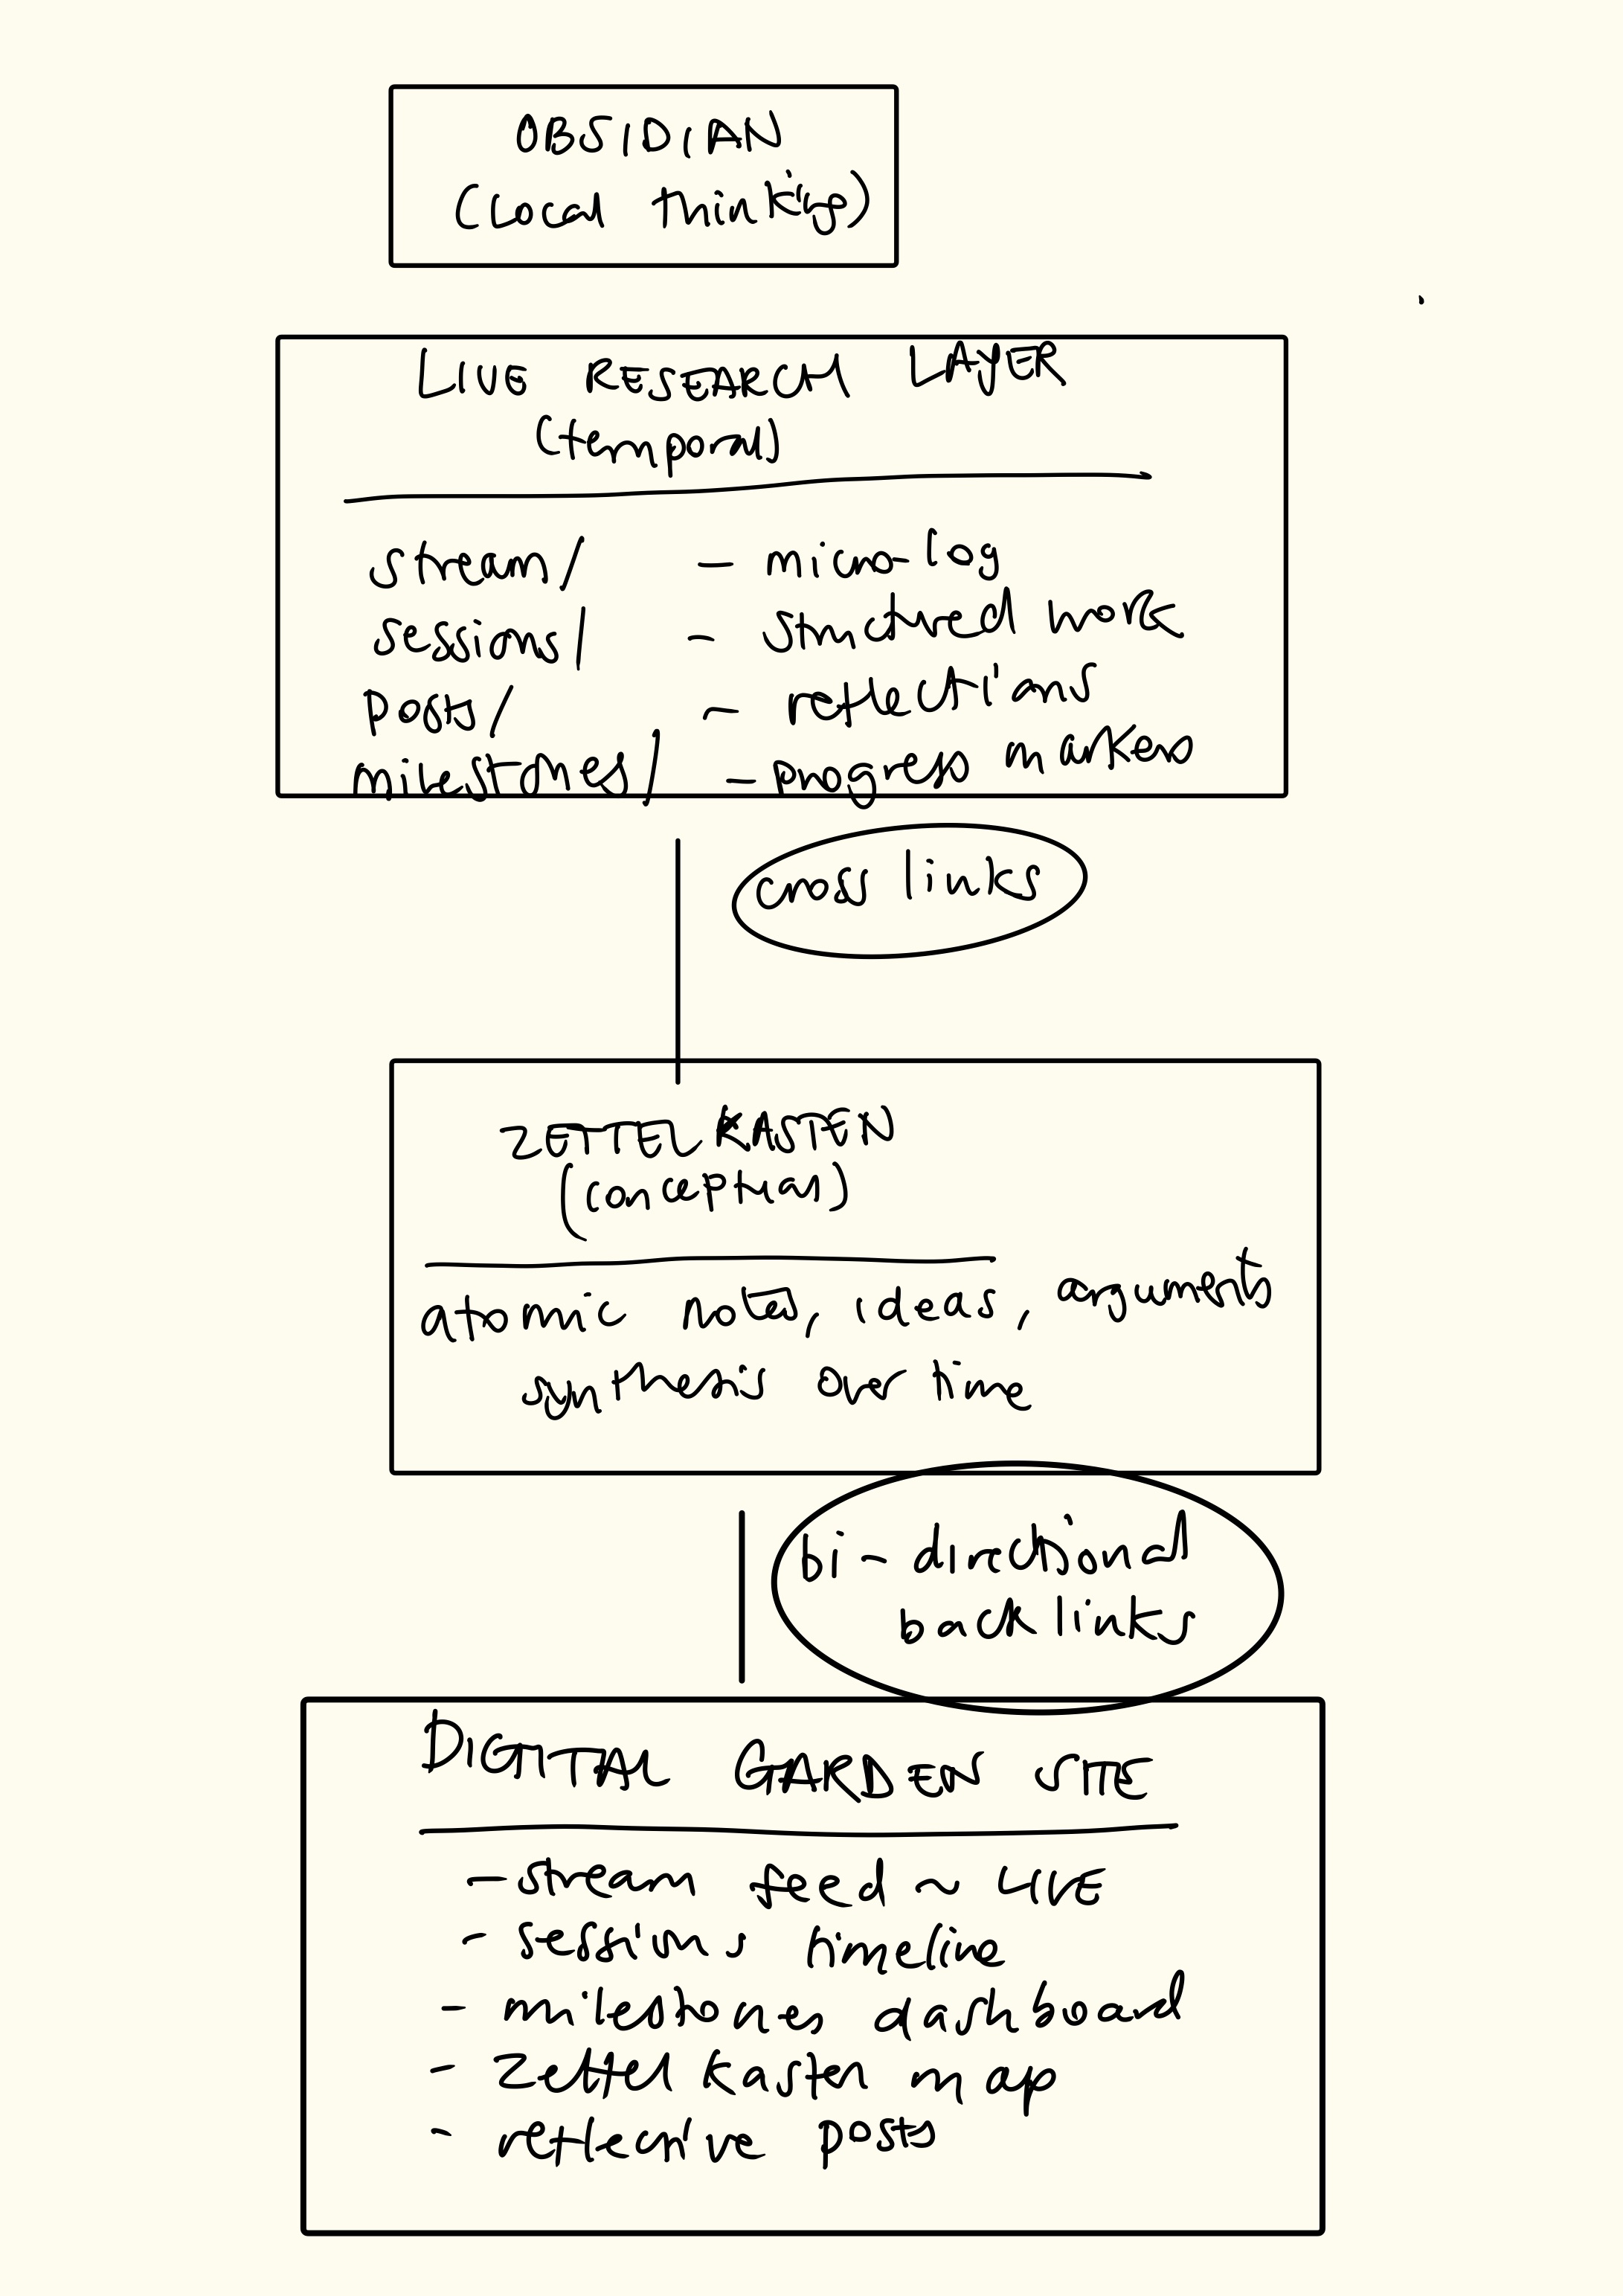 OBSIDIAN
(local thinking)
LIVE RESEARCH LAYER
(temporal)
stream/ — micro-log
sessions/ — structured work
posts/ — reflections
milestones/ — progress markers
cross links
ZETTELKASTEN
(conceptual)
atomic notes, ideas, arguments
synthesis over time
bi-directional
backlinks
DIGITAL GARDEN SITE
- stream feed ~ LIVE
- sessions timeline
- milestones dashboard
- zettelkasten map
- reflective posts